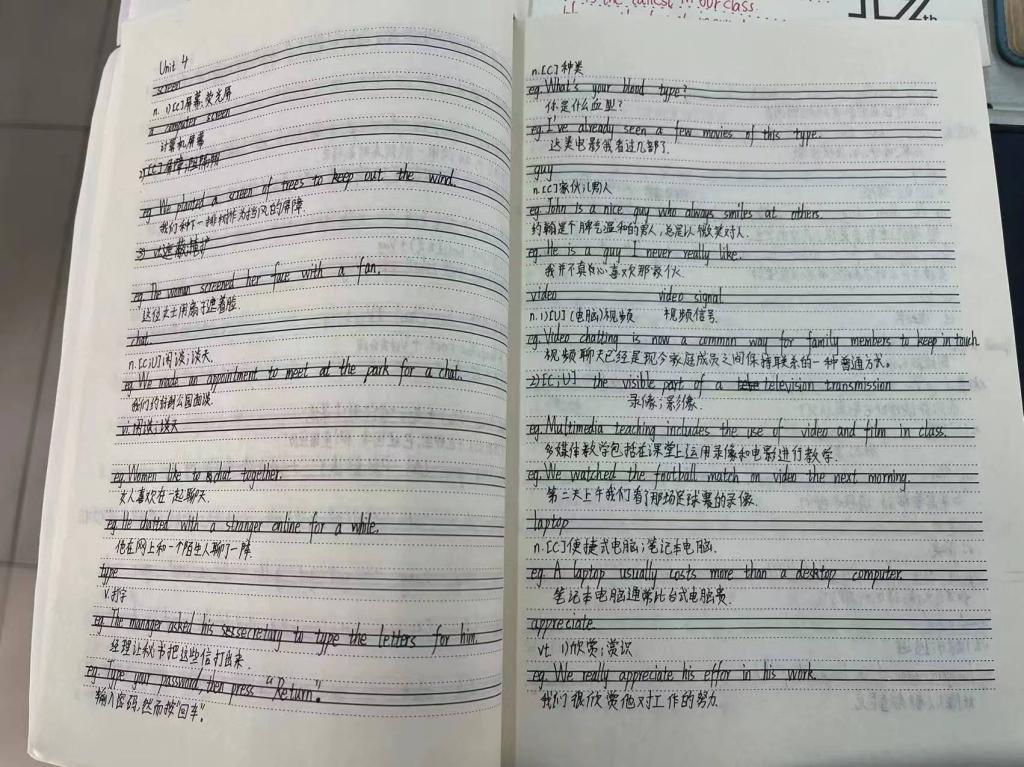 is the tallest in our class.
th
Unit 4
screen
n. 1) [C] 屏幕;荧光屏
a computer screen
计算机屏幕
2) [C] 屏障;
eg. We planted a screen of trees to keep out the wind.
我们种下一排树作为挡风的屏障
3) vt.遮蔽;掩护
eg. The woman screened her face with a fan.
这位女士用扇子遮着脸.
chat
n. [C;U] 闲谈;谈天
eg. We made an appointment to meet at the park for a chat.
我们约好到公园面谈.
vi. 闲谈;谈天
eg. Women like to chat together.
女人喜欢在一起聊天.
eg. He chatted with a stranger online for a while.
他在网上和一个陌生人聊了一阵.
type
v. 打字
eg. The manager asked his sessecretary to type the letters for him.
经理让秘书把这些信打出来.
eg. Type your password, then press "Return".
输入密码,然而按"回车".
n. [C] 种类
eg. What's your blood type?
你是什么血型?
eg. I've already seen a few movies of this type.
这类电影我看过几部了.
guy
n. [C] 家伙;男人
eg. John is a nice guy who always smiles at others.
约翰是个脾气温和的男人,总是以微笑对人.
eg. He is a guy I never really like.
我并不真正心喜欢那家伙.
video video signal
n. 1) [U] (电脑)视频 视频信号
eg. Video chatting is now a common way for family members to keep in touch.
视频聊天已经是现今家庭成员之间保持联系的一种普通方式。
2) [C;U] the visible part of a television transmission
录像;影像.
eg. Multimedia teaching includes the use of video and film in class.
多媒体教学包括在课堂上运用录像和电影进行教学.
eg. We watched the football match on video the next morning.
第二天上午我们看了那场足球赛的录像.
laptop
n. [C] 便捷式电脑;笔记本电脑.
eg. A laptop usually costs more than a desktop computer.
笔记本电脑通常比台式电脑贵.
appreciate.
vt. 1) 欣赏;赏识
eg. We really appreciate his effor in his work.
我们很欣赏他对工作的努力.